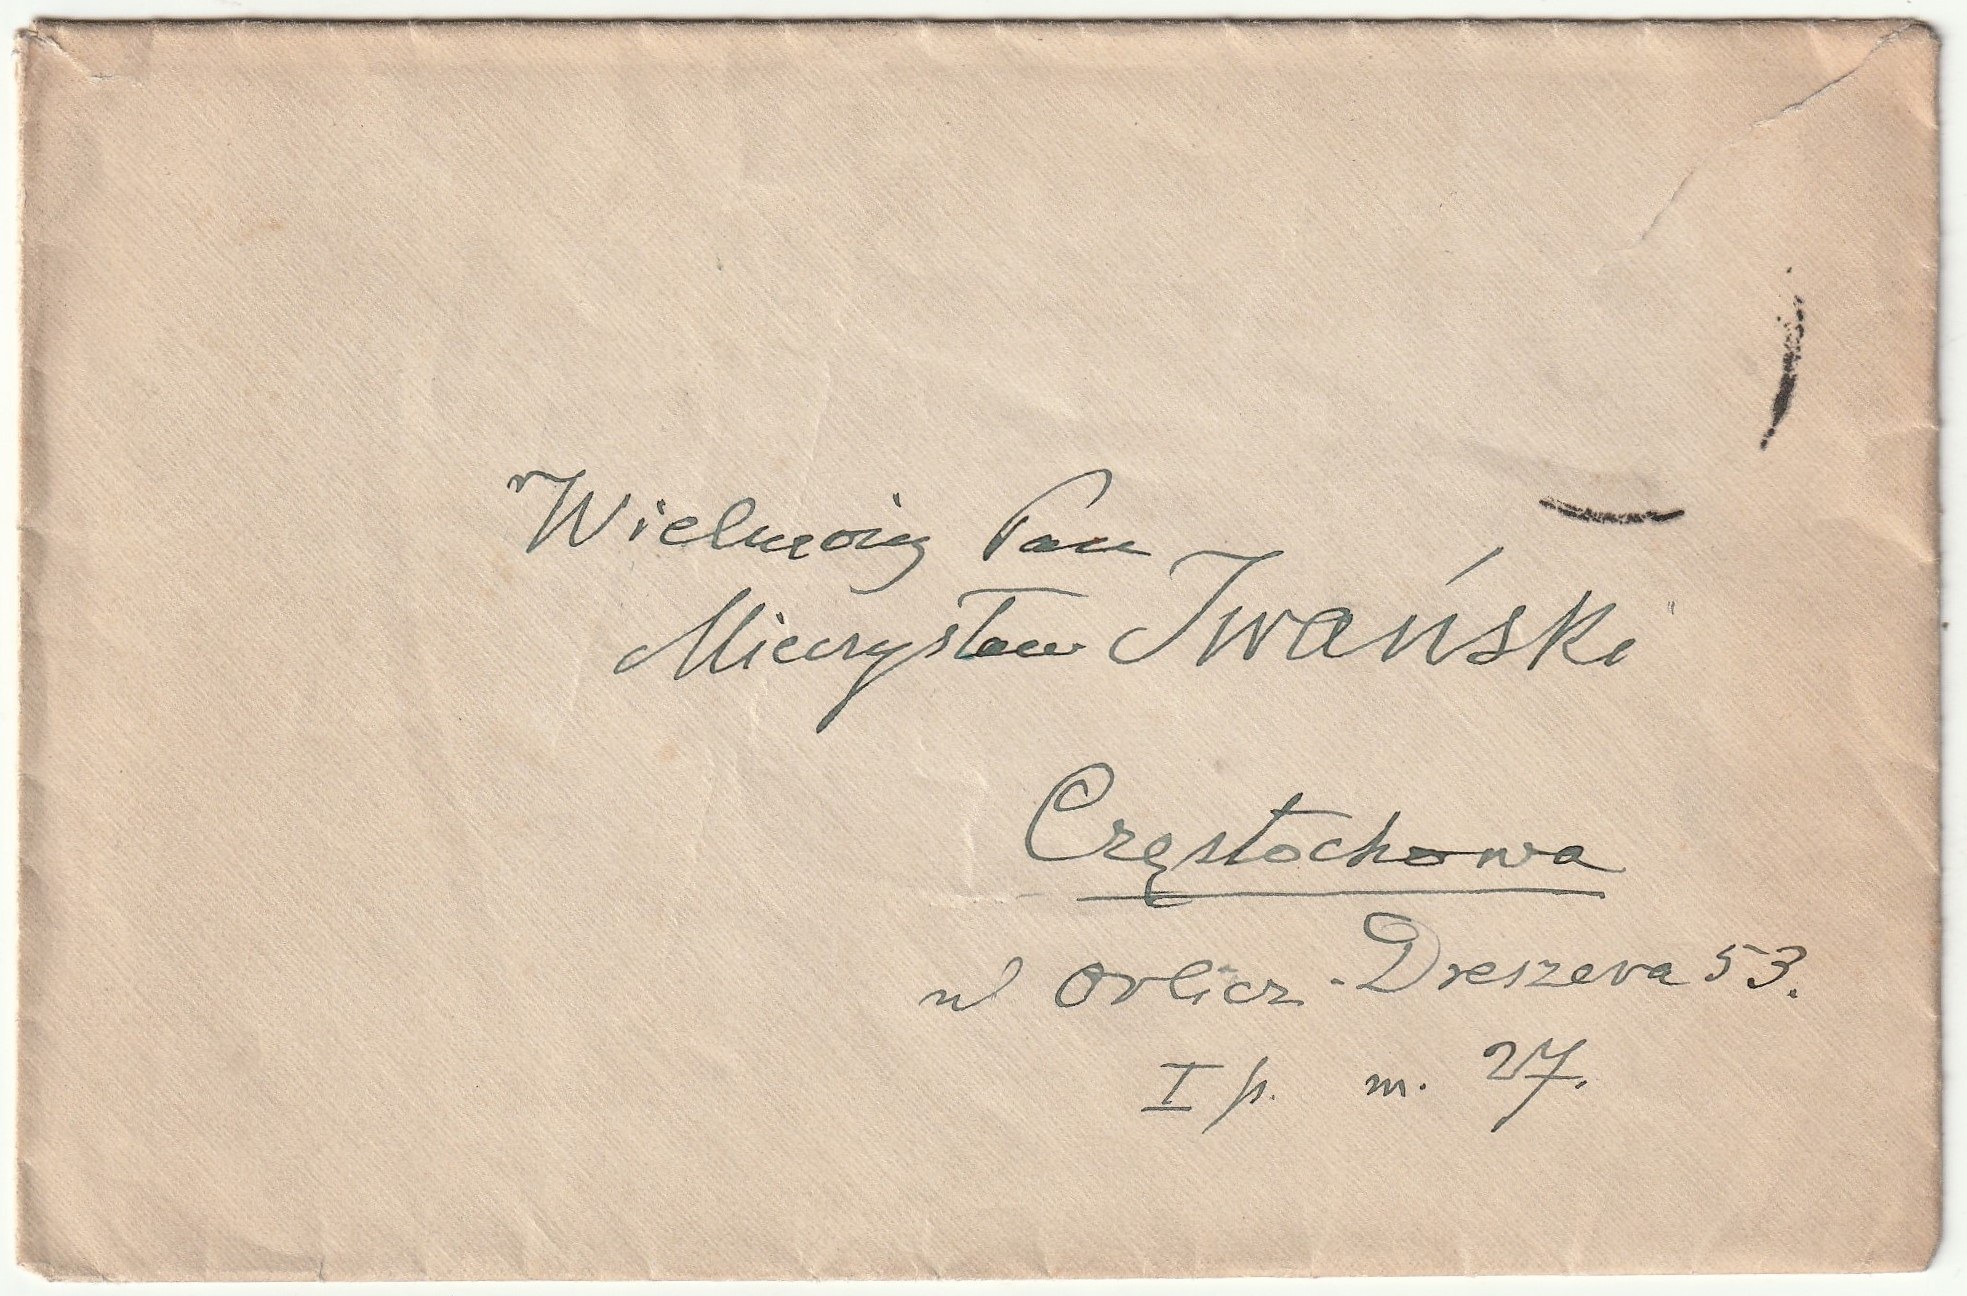 Wielmożny Pan
Mieczysław Iwański
Częstochowa
ul Orlicz-Dreszera 53.
I p. m. 27.